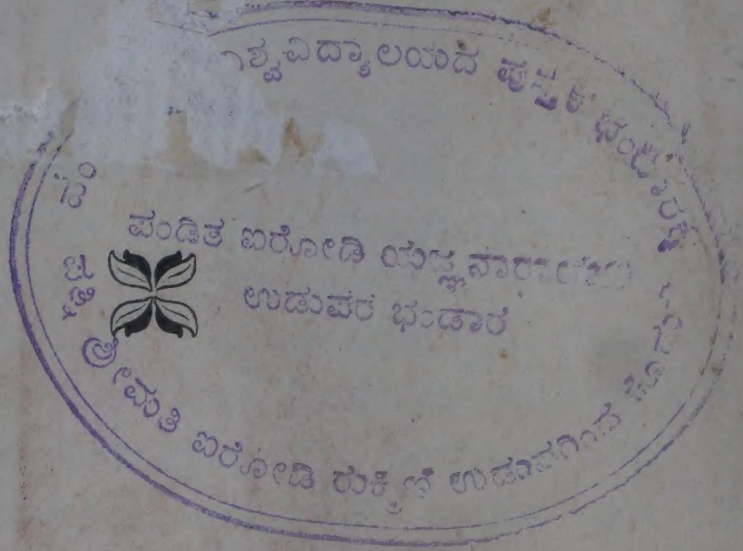 ಶ್ವವಿದ್ಯಾಲಯದ ಪುಸ್ತಕ ಭಂಡಾರಕ್ಕೆ
ಪಂಡಿತ ಐರೋಡಿ ಯಜ್ಞನಾರಾಯಣ
ಉಡುಪರ ಭಂಡಾರ
ಶ್ರೀಮತಿ ಐರೋಡಿ ರುಕ್ಮಿಣಿ ಉಡುಪರಿಂದ